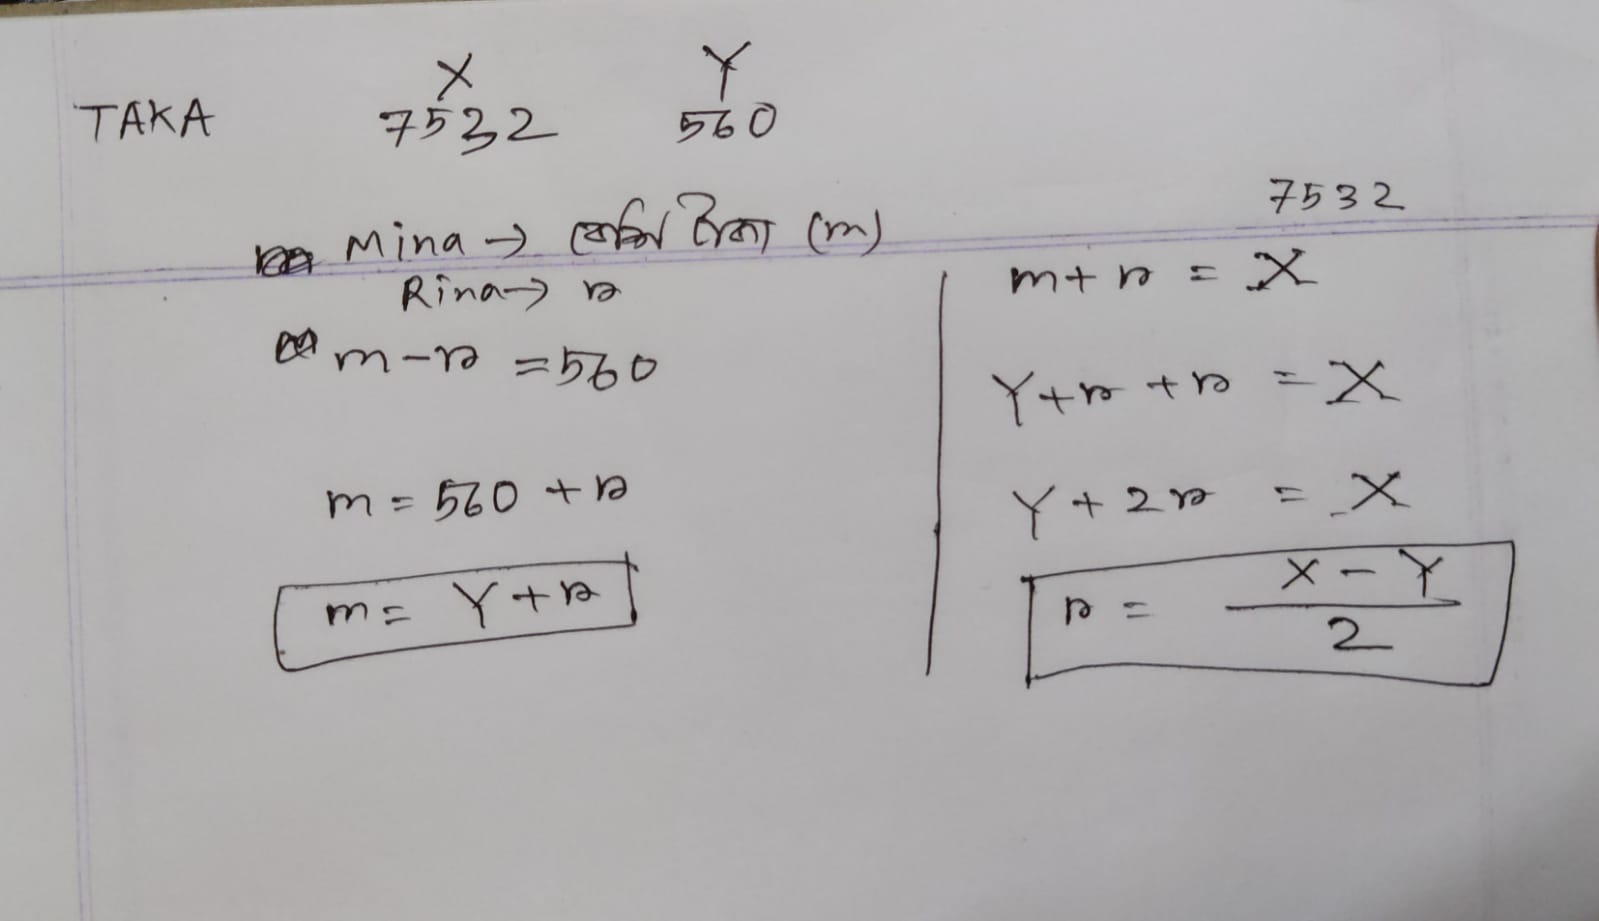 X Y
TAKA 7532 560
Mina → বেশি টাকা (m)
Rina → r
m - r = 560
m = 560 + r
m = Y + r
7532
m + r = X
Y + r + r = X
Y + 2r = X
r = X - Y / 2